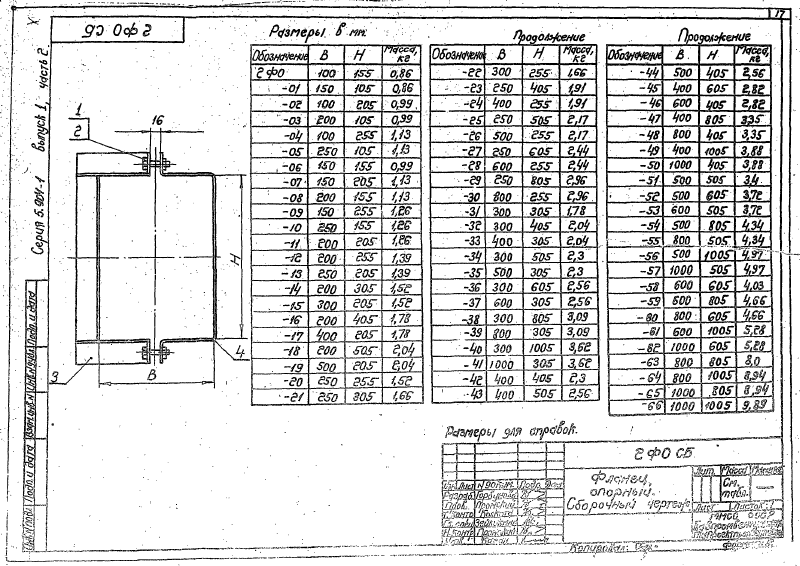 17
2ФО СБ
Серия 5.904-1 выпуск 1, часть 2
Размеры в мм
Обозначение B H Масса, кг
2ФО 100 155 0,86
-01 150 105 0,86
-02 100 205 0,99
-03 200 105 0,99
-04 100 255 1,13
-05 250 105 1,13
-06 150 155 0,99
-07 150 205 1,13
-08 200 155 1,13
-09 150 255 1,26
-10 250 155 1,26
-11 200 205 1,26
-12 200 255 1,39
-13 250 205 1,39
-14 200 305 1,52
-15 300 205 1,52
-16 200 405 1,78
-17 400 205 1,78
-18 200 505 2,04
-19 500 205 2,04
-20 250 255 1,52
-21 250 305 1,66
Продолжение
Обозначение B H Масса, кг
-22 300 255 1,66
-23 250 405 1,91
-24 400 255 1,91
-25 250 505 2,17
-26 500 255 2,17
-27 250 605 2,44
-28 600 255 2,44
-29 250 805 2,96
-30 800 255 2,96
-31 300 305 1,78
-32 300 405 2,04
-33 400 305 2,04
-34 300 505 2,3
-35 500 305 2,3
-36 300 605 2,56
-37 600 305 2,56
-38 300 805 3,09
-39 800 305 3,09
-40 300 1005 3,62
-41 1000 305 3,62
-42 400 405 2,3
43 400 505 2,56
Продолжение
Обозначение B H Масса, кг
-44 500 405 2,56
-45 400 605 2,82
-46 600 405 2,82
-47 400 805 3,35
-48 800 405 3,35
-49 400 1005 3,88
-50 1000 405 3,88
-51 500 505 3,4
-52 500 605 3,72
-53 600 505 3,72
-54 500 805 4,34
-55 800 505 4,34
-56 500 1005 4,97
-57 1000 505 4,97
-58 600 605 4,03
-59 600 805 4,66
-60 800 605 4,66
-61 600 1005 5,28
-62 1000 605 5,28
-63 800 805 8,0
-64 800 1005 8,94
-65 1000 805 8,94
-66 1000 1005 9,89
1
2
16
H
B
3
4
Размеры для справок.
2ФО СБ
Фланец
опорный.
Сборочный чертеж
Лит. Масса Масштаб
См. табл.
Лист Листов 1
Копировал: